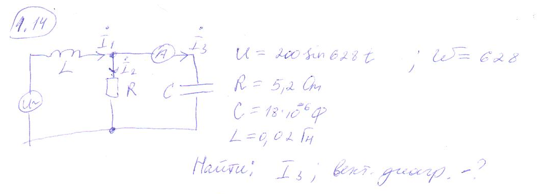 1.14
İ₁
İ₂
İ₃
A
L
R
C
U~
U = 200 sin 628 t ; W = 628
R = 5,2 Om
C = 18·10⁻⁶ Ф
L = 0,02 Гн
Найти: İ₃ ; вект. диагр. - ?